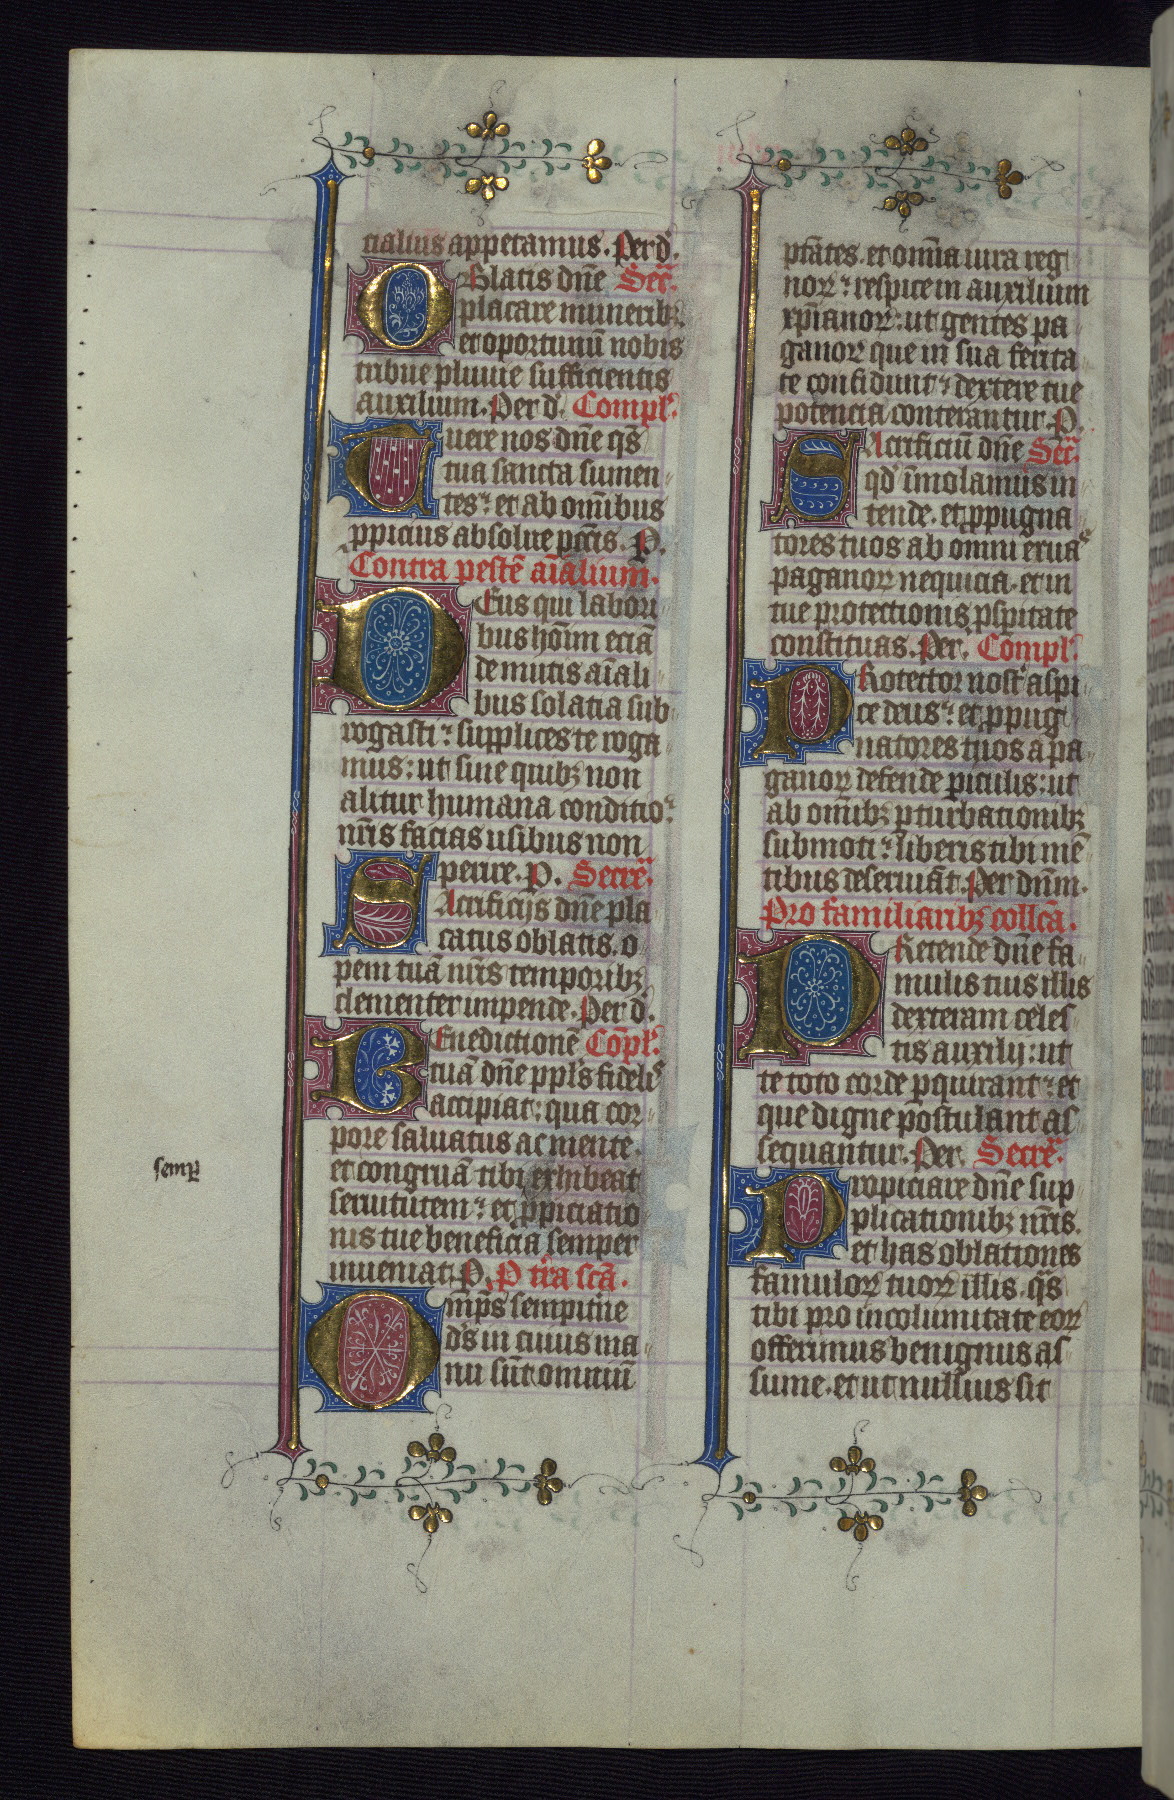 cialius appetamus. Per d̄.
OBlatis dn̄e Sec̄.
placare muneribꝫ
et oportunū nobis
tribue pluuie sufficientis
auxilium. Per d̄. Compl̄.
Tuere nos dn̄e q̄s
tua sancta sumen
tes: et ab om̄ibus
ꝓpicius absolue pcc̄is. P.
Contra pestē aīalium.
DEus qui labori
bus hoīm eciā
de mutis aīali
bus solatia sub
rogasti: supplices te roga
mus: ut sine quibꝫ non
alitur humana conditio:
nr̄is facias usibus non
perire. P. Secre᷑.
SAcrificijs dn̄e pla
catus oblatis. o
pem tuā nr̄is temporibꝫ
clementer impende. Per d̄.
BEnedictionē Cōpl̄.
tuā dn̄e ppl̄s fidelis
accipiat: qua cor
pore saluatus ac mente.
et congruā tibi exhibeat
semp̄
seruitutem: et ꝓpiciatio
nis tue beneficia semper
inueniat. P. P tr̄a scā.
Omp̄s sempit̄ne
ds̄ in cuius ma
nu sūt omniū
ptātes. et om̄ia iura reg
noꝝ: respice in auxilium
xp̄ianoꝝ: ut gentes pa
ganoꝝ que in sua ferita
te confidunt: dextere tue
potencia conterantur. P.
SAcrificiū dn̄e Sec̄.
qd̄ īmolamus in
tende. et ꝓpugna
tores tuos ab omni erua
paganoꝝ nequicia. et in
tue protectionis ꝓsp̄itate
constituas. Per. Compl̄.
PRotector nost̄ aspi
ce deus: et ꝓpug
natores tuos a pa
ganoꝝ defende ꝑiculis: ut
ab om̄ibꝫ ꝑturbationibꝫ
submoti: liberis tibi mē
tibus deseruiāt. Per dn̄m.
Pro familiaribꝫ collc̄a.
PRetende dn̄e fa
mulis tuis illis
dexteram celes
tis auxilij: ut
te toto corde ꝑquirant: et
que digne postulant as
sequantur. Per. Secre᷑.
PRopiciare dn̄e sup
plicationibꝫ nr̄is.
et has oblationes
famuloꝝ tuoꝝ illis. q̄s
tibi pro incolumitate eoꝝ
offerimus benignus as
sume. et ut nullius sit